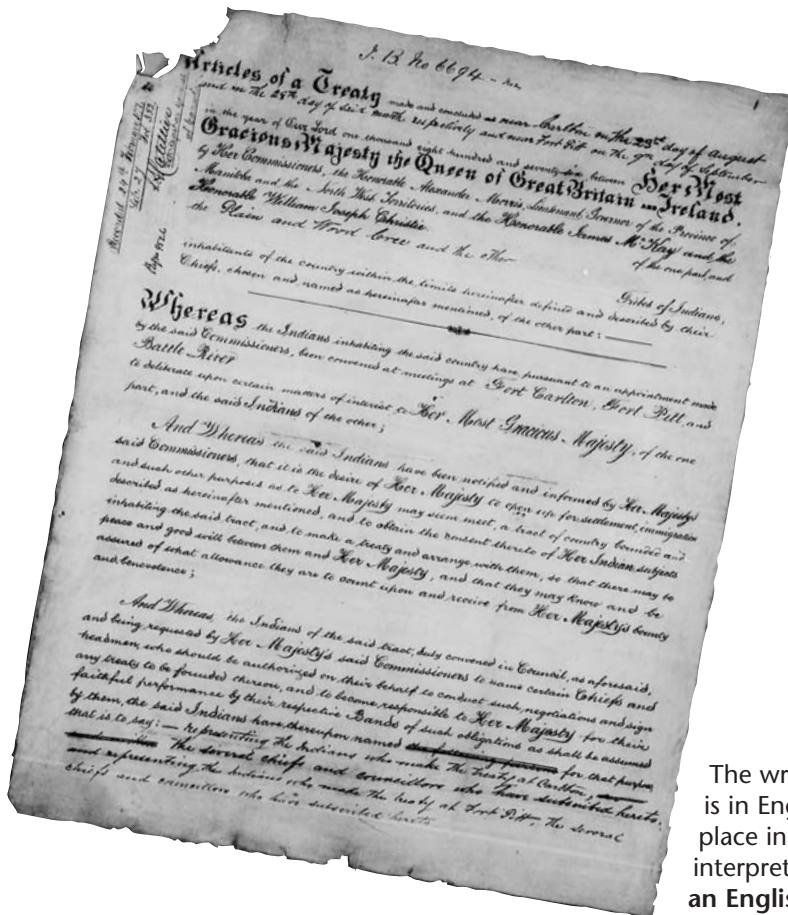 I. B. No 6694
Articles of a Treaty made and concluded at near Carlton on the 23rd day of August
and on the 28th day of said month respectively and near Fort Pitt on the 9th day of September
in the year of Our Lord one thousand eight hundred and seventy-six between Her Most
Gracious Majesty the Queen of Great Britain and Ireland,
by Her Commissioners, the Honorable Alexander Morris, Lieutenant Governor of the Province of
Manitoba and the North West Territories, and the Honorable James McKay and the
Honorable William Joseph Christie of the one part, and
the Plain and Wood Cree and the other
Tribes of Indians,
inhabitants of the country within the limits hereinafter defined and described by their
Chiefs, chosen and named as hereinafter mentioned, of the other part:
Whereas the Indians inhabiting the said country have, pursuant to an appointment made
by the said Commissioners, been convened at meetings at Fort Carlton, Fort Pitt, and
Battle River
to deliberate upon certain matters of interest to Her Most Gracious Majesty, of the one
part, and the said Indians of the other;
And Whereas the said Indians have been notified and informed by Her Majesty's
said Commissioners, that it is the desire of Her Majesty to open up for settlement, immigration
and such other purposes as to Her Majesty may seem meet, a tract of country bounded and
described as hereinafter mentioned, and to obtain the consent thereto of Her Indian subjects
inhabiting the said tract, and to make a treaty and arrange with them, so that there may be
peace and good will between them and Her Majesty, and that they may know and be
assured of what allowance they are to count upon and receive from Her Majesty's bounty
and benevolence;
And Whereas, the Indians of the said tract, duly convened in Council, as aforesaid,
and being requested by Her Majesty's said Commissioners to name certain Chiefs and
headmen, who should be authorized on their behalf to conduct such negotiations and sign
any treaty to be founded thereon, and to become responsible to Her Majesty for their
faithful performance by their respective Bands of such obligations as shall be assumed
by them, the said Indians have thereupon named for that purpose,
that is to say:— representing the Indians who make the treaty at Carlton,
the several chiefs and councillors who have subscribed hereto,
and representing the Indians who make the treaty at Fort Pitt, the several
chiefs and councillors who have subscribed hereto
The wr
is in Eng
place in
interpret
an Englis